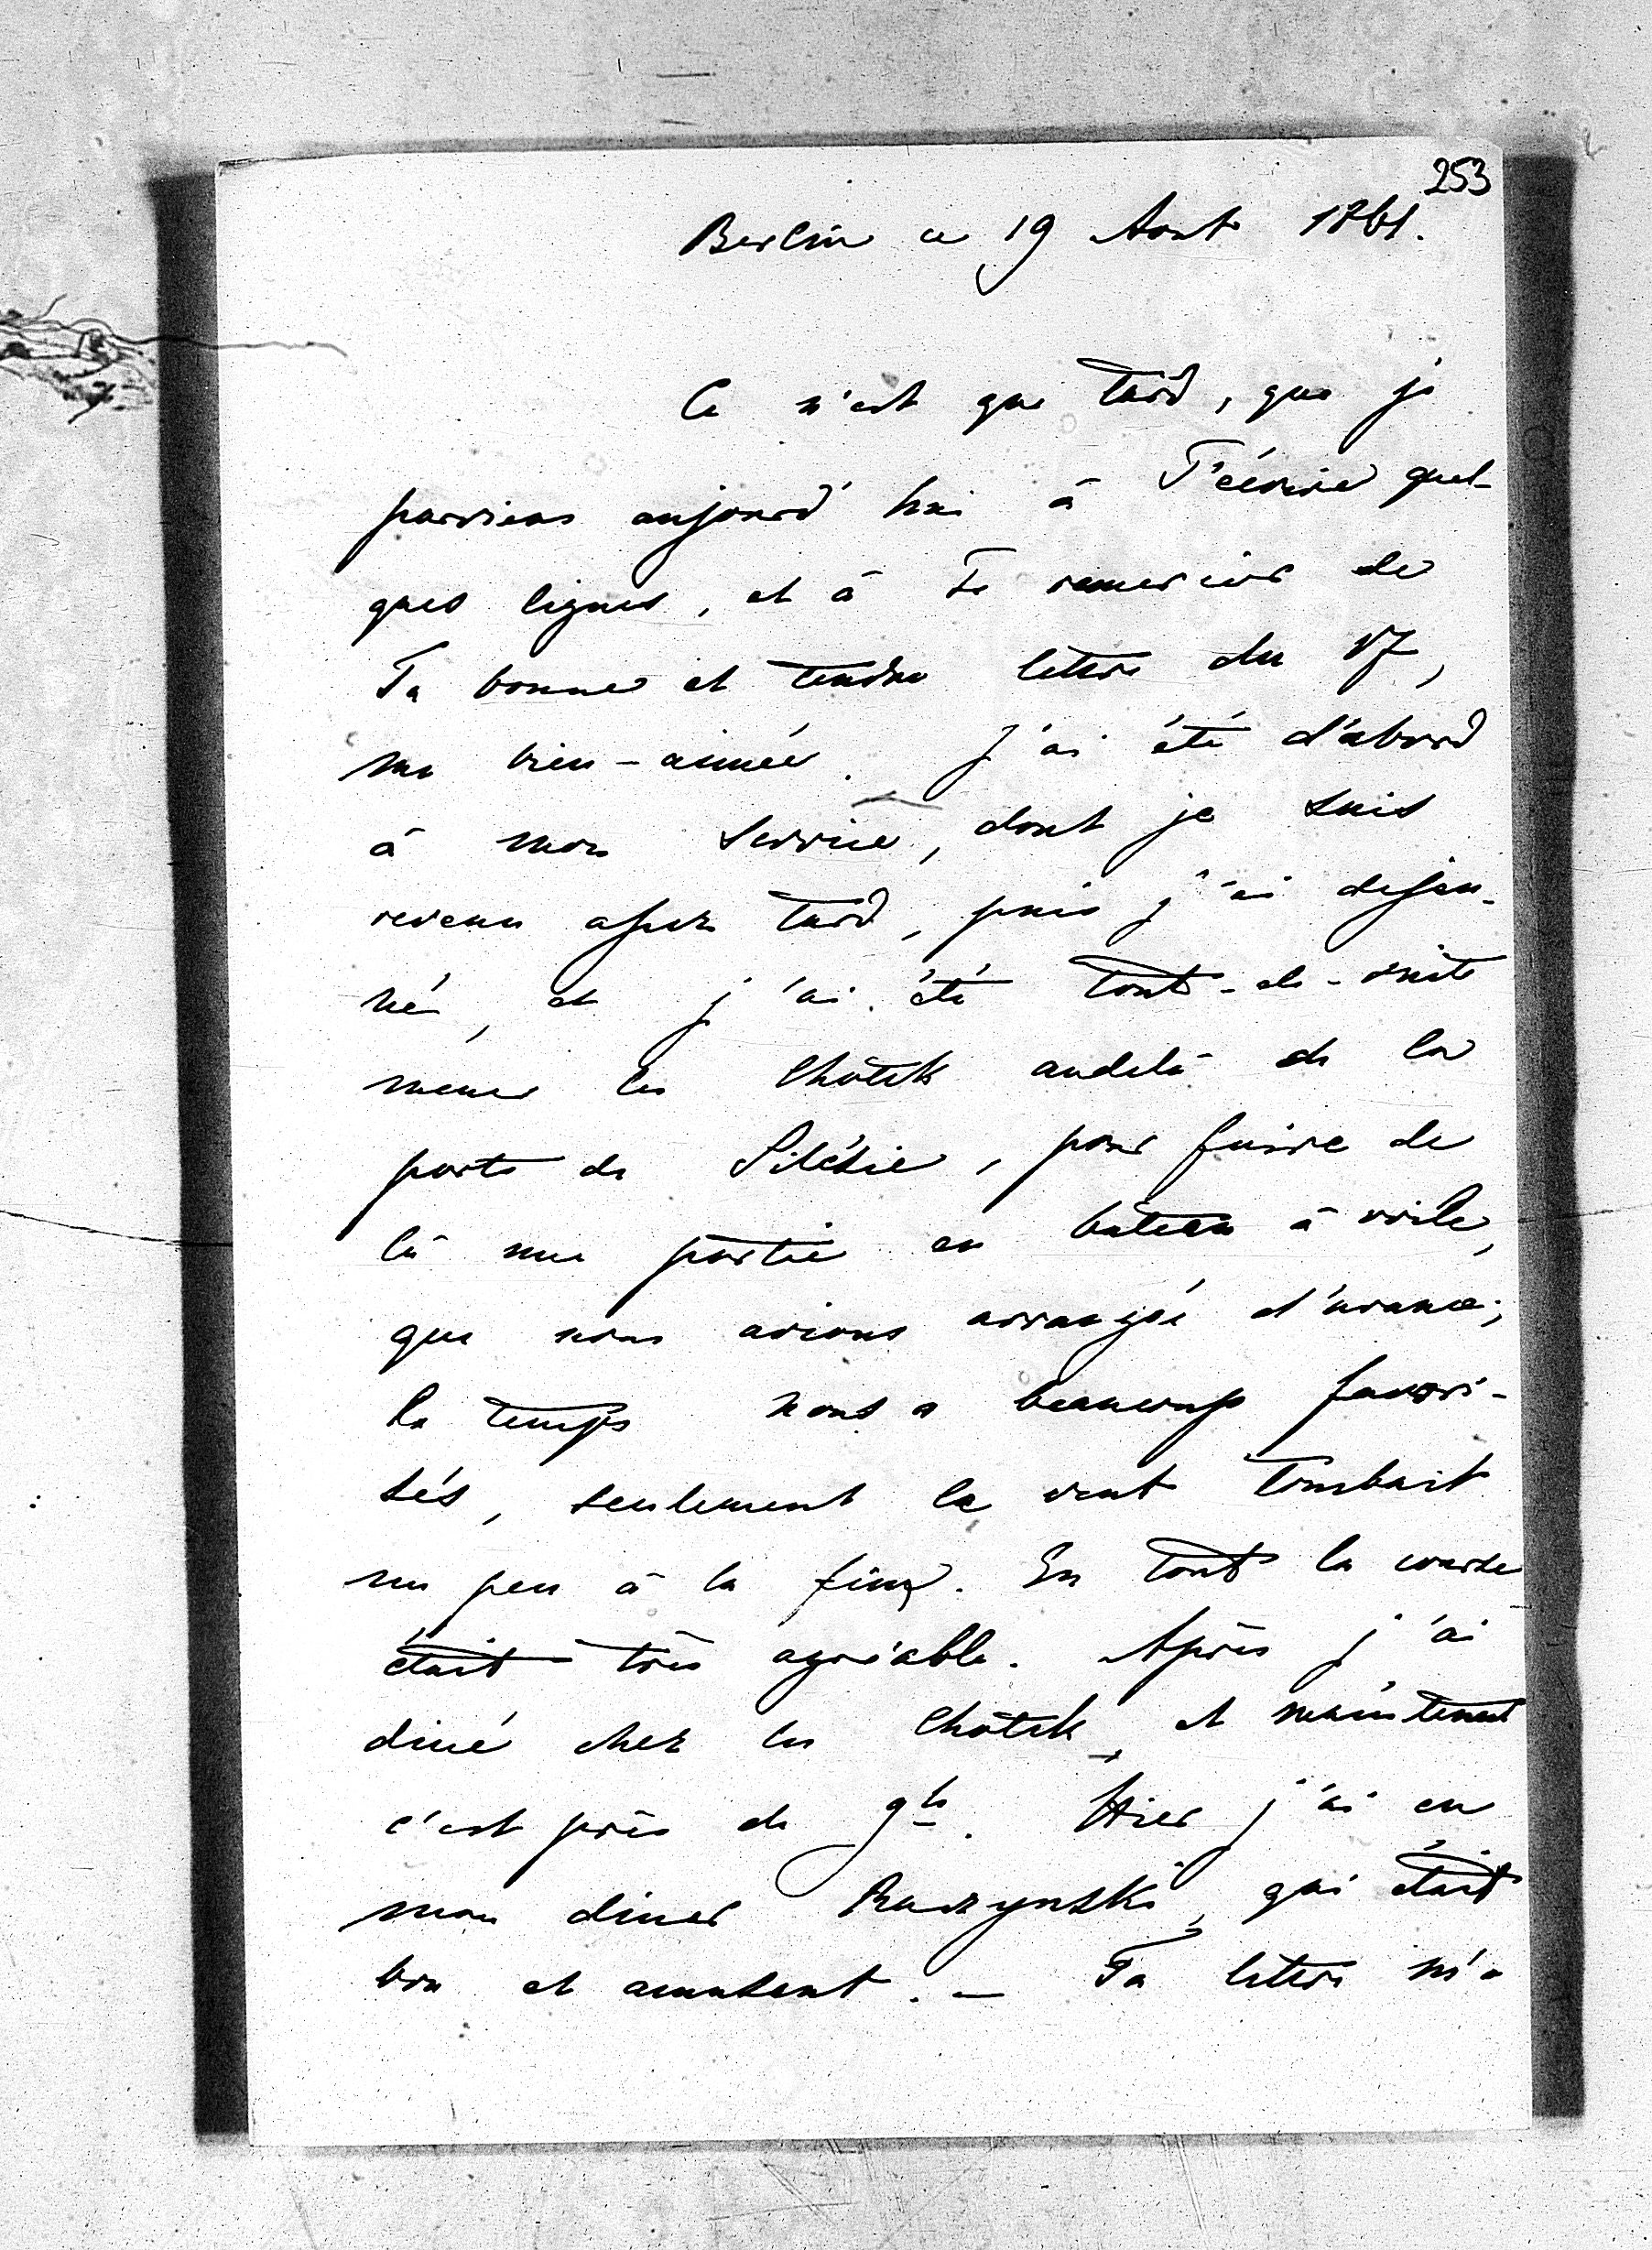 253
Berlin ce 19 Aout 1861.
Ce n'est que tard, que je
parviens aujourd'hui à T'écrire quel-
ques lignes, et à Te remercier de
Ta bonne et tendre lettre du 17,
ma bien-aimée. J'ai été d'abord
à mon service, dont je suis
revenu assez tard, puis j'ai dejeu-
né, et j'ai été tout-de-suite
mener les Chotek audelà de la
porte de Silésie, pour faire de
là une partie en bateau à voile,
que nous avions arrangé d'avance;
le temps nous a beaucoup favori-
sés, seulement le vent tombait
un peu à la fin. En tout la course
était très agréable. Après j'ai
diné chez les Chotek, et maintenant
c'est près de 9h. Hier j'ai eu
mon diner Raczynski, qui était
bon et amusant. — Ta lettre m'a